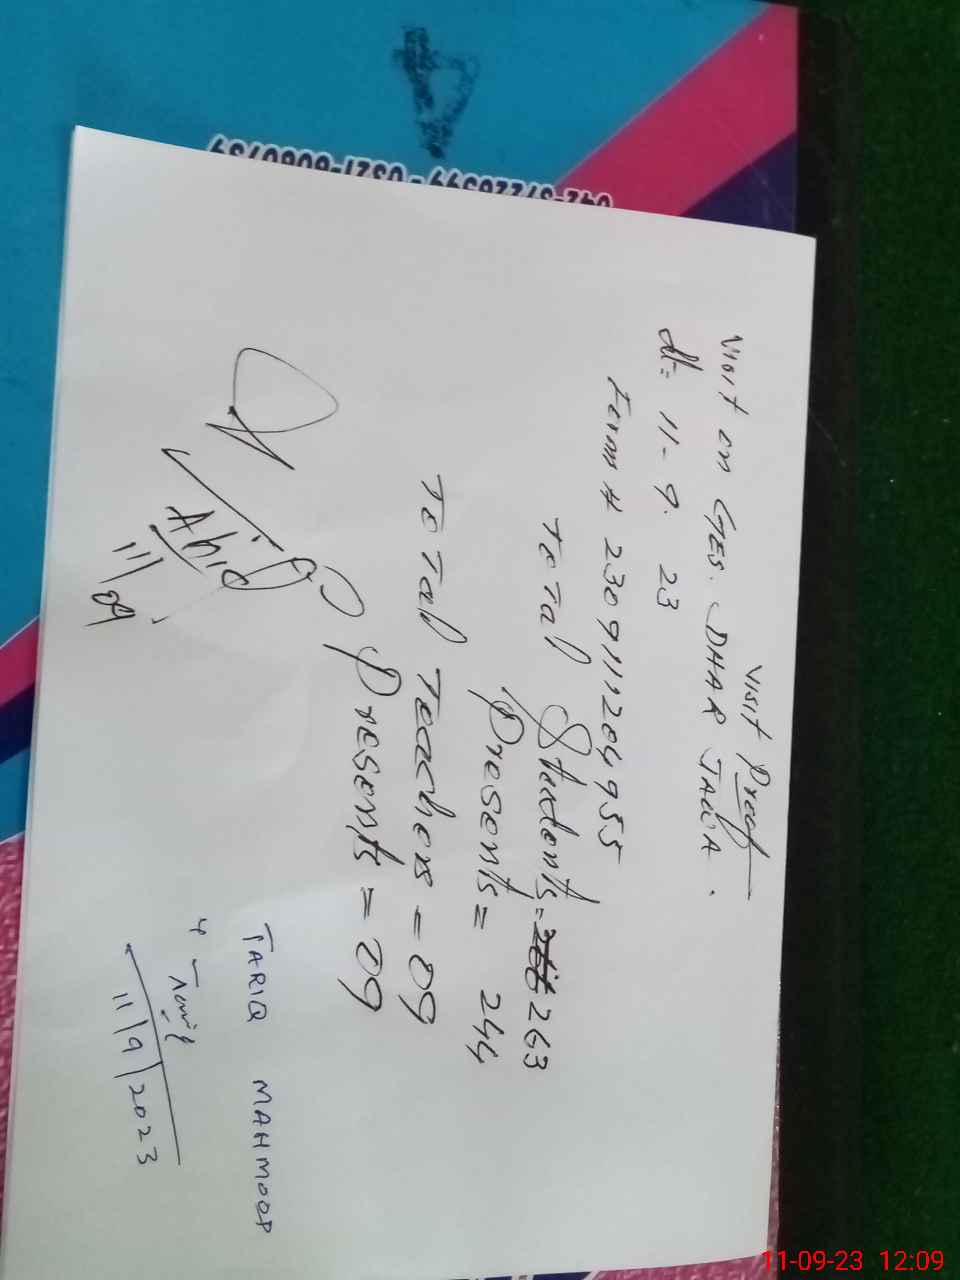 Visit Proof
Visit on GES. DHAR JAWA.
dt= 11-9.23
Form # 2309111204955
Total Students = 263
Presents = 244
Total Teachers = 09
Presents = 09
Abid
11/09
TARIQ MAHMOOD
Tariq
11/9/2023
4
11-09-23 12:09